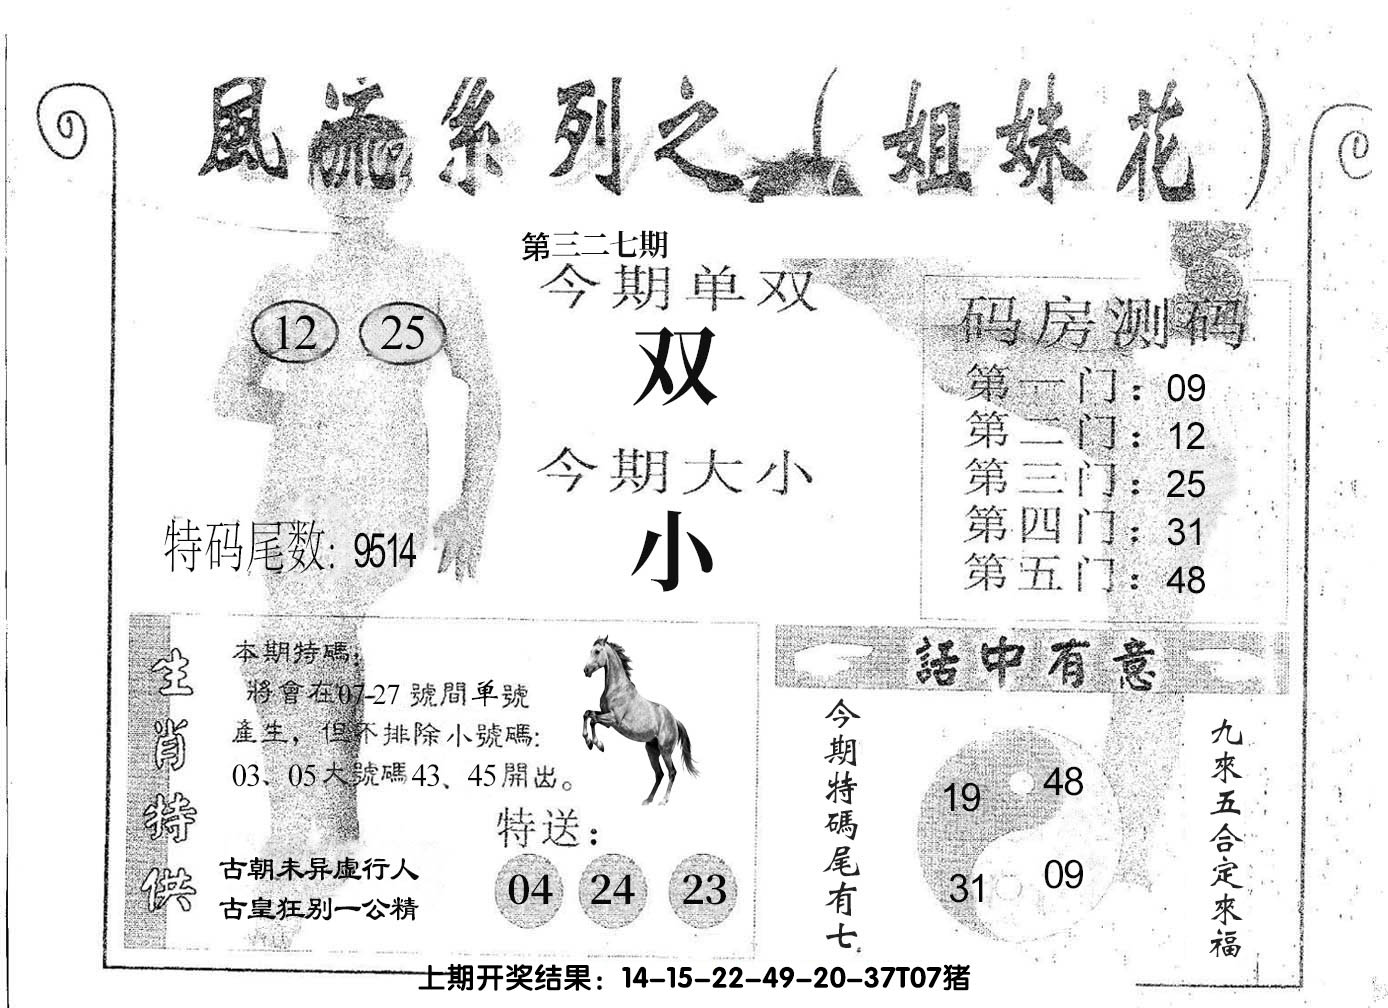 風流系列之（姐妹花）
第三二七期
今期单双
双
今期大小
小
12 25
特码尾数: 9514
码房测码
第一门：09
第二门：12
第三门：25
第四门：31
第五门：48
生肖特供
本期特碼，
將會在07-27 號間单號
產生，但不排除小號碼:
03、05大號碼43、45開出。
特送：
04 24 23
古朝未异虚行人
古皇狂别一公精
話中有意
今期特碼尾有七
19 48
31 09
九來五合定來福
上期开奖结果：14-15-22-49-20-37T07猪